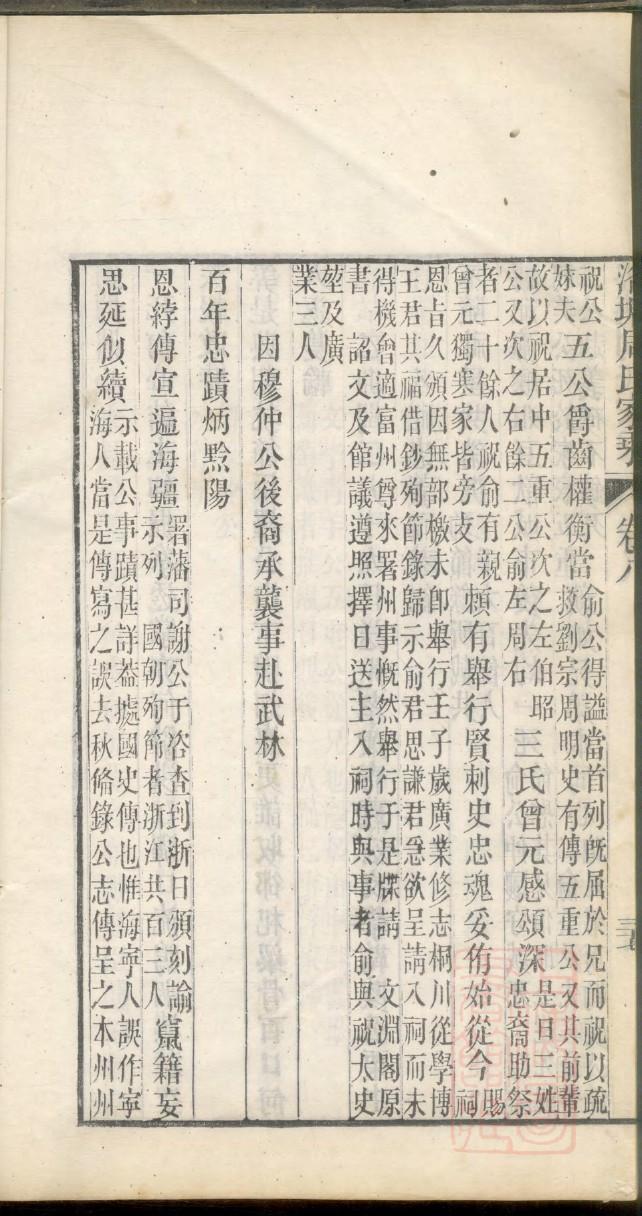 洛塘周氏家乘 卷八 三七
祝公
妹夫
五公爵齒權衡當
俞公得謚當首列旣屬於兄而祝以疏
救劉宗周明史有傳五重公又其前輩
故以祝居中五重公次之左伯昭
公又次之右餘二公俞左周右
三氏曾元感頌深
是日三姓
忠裔助祭
者二十餘人祝俞有親
曾元獨寒家皆旁支
賴有舉行賢刺史忠魂妥侑始從今
賜
祠
恩旨久頒因無部檄未卽舉行壬子歲廣業修志桐川從學博
王君其福借鈔殉節錄歸示俞君思謙君急欲呈請入祠而未
得機會適富州尊來署州事慨然舉行于是牒請 文淵閣原
書 詔文及館議遵照擇日送主入祠時與事者俞與祝太史
堃及廣
業三人
因穆仲公後裔承襲事赴武林
百年忠蹟炳黔陽
恩綍傳宣遍海疆
署藩司謝公于咨查到浙日頒刻諭
示列 國朝殉節者浙江共百三人
竄籍妄
思延似續
示載公事蹟甚詳葢據國史傳也惟海寧人誤作寧
海人當是傳寫之誤去秋脩錄公志傳呈之本州州